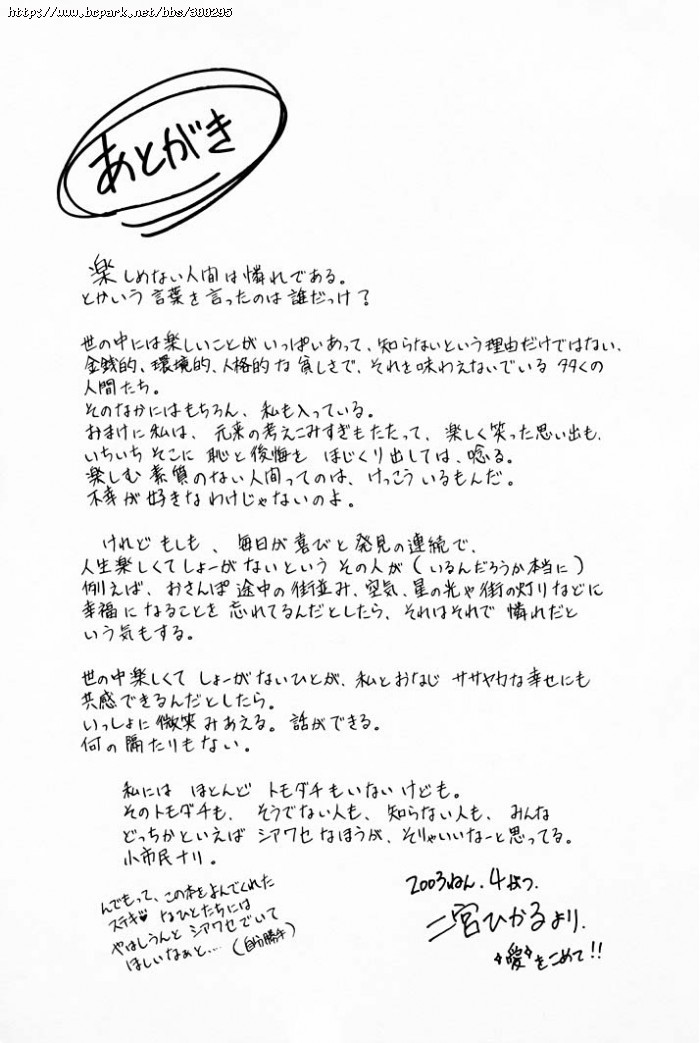 http://www.bcpark.net/bbs/300295
あとがき
楽しめない人間は憐れである。
とかいう言葉を言ったのは誰だっけ?
世の中には楽しいことがいっぱいあって、知らないという理由だけではない、
金銭的、環境的、人格的な貧しさで、それを味わえないでいる多くの
人間たち。
そのなかにはもちろん、私も入っている。
おまけに私は、元来の考えこみすぎもたたって、楽しく笑った思い出も、
いちいちそこに恥と後悔をほじくり出しては、唸る。
楽しむ素質のない人間ってのは、けっこういるもんだ。
不幸が好きなわけじゃないのよ。
けれどもしも、毎日が喜びと発見の連続で、
人生楽しくてしょーがないというその人が(いるんだろうか本当に)
例えば、おさんぽ途中の街並み、空気、星の光や街の灯りなどに
幸福になることを忘れてるんだとしたら、それはそれで憐れだと
いう気もする。
世の中楽しくてしょーがないひとが、私とおなじササヤカな幸せにも
共感できるんだとしたら。
いっしょに微笑みあえる。話ができる。
何の隔たりもない。
私にはほとんどトモダチもいないけども。
そのトモダチも、そうでない人も、知らない人も、みんな
どっちかといえばシアワセなほうが、そりゃいいなーと思ってる。
小市民ナリ。
んでもって、この本をよんでくれた
ステキ♥なひとたちには
やはしうんとシアワセでいて
ほしいなぁと……(自分勝手)
2003ねん、4がつ、
二宮ひかるより、
愛をこめて!!